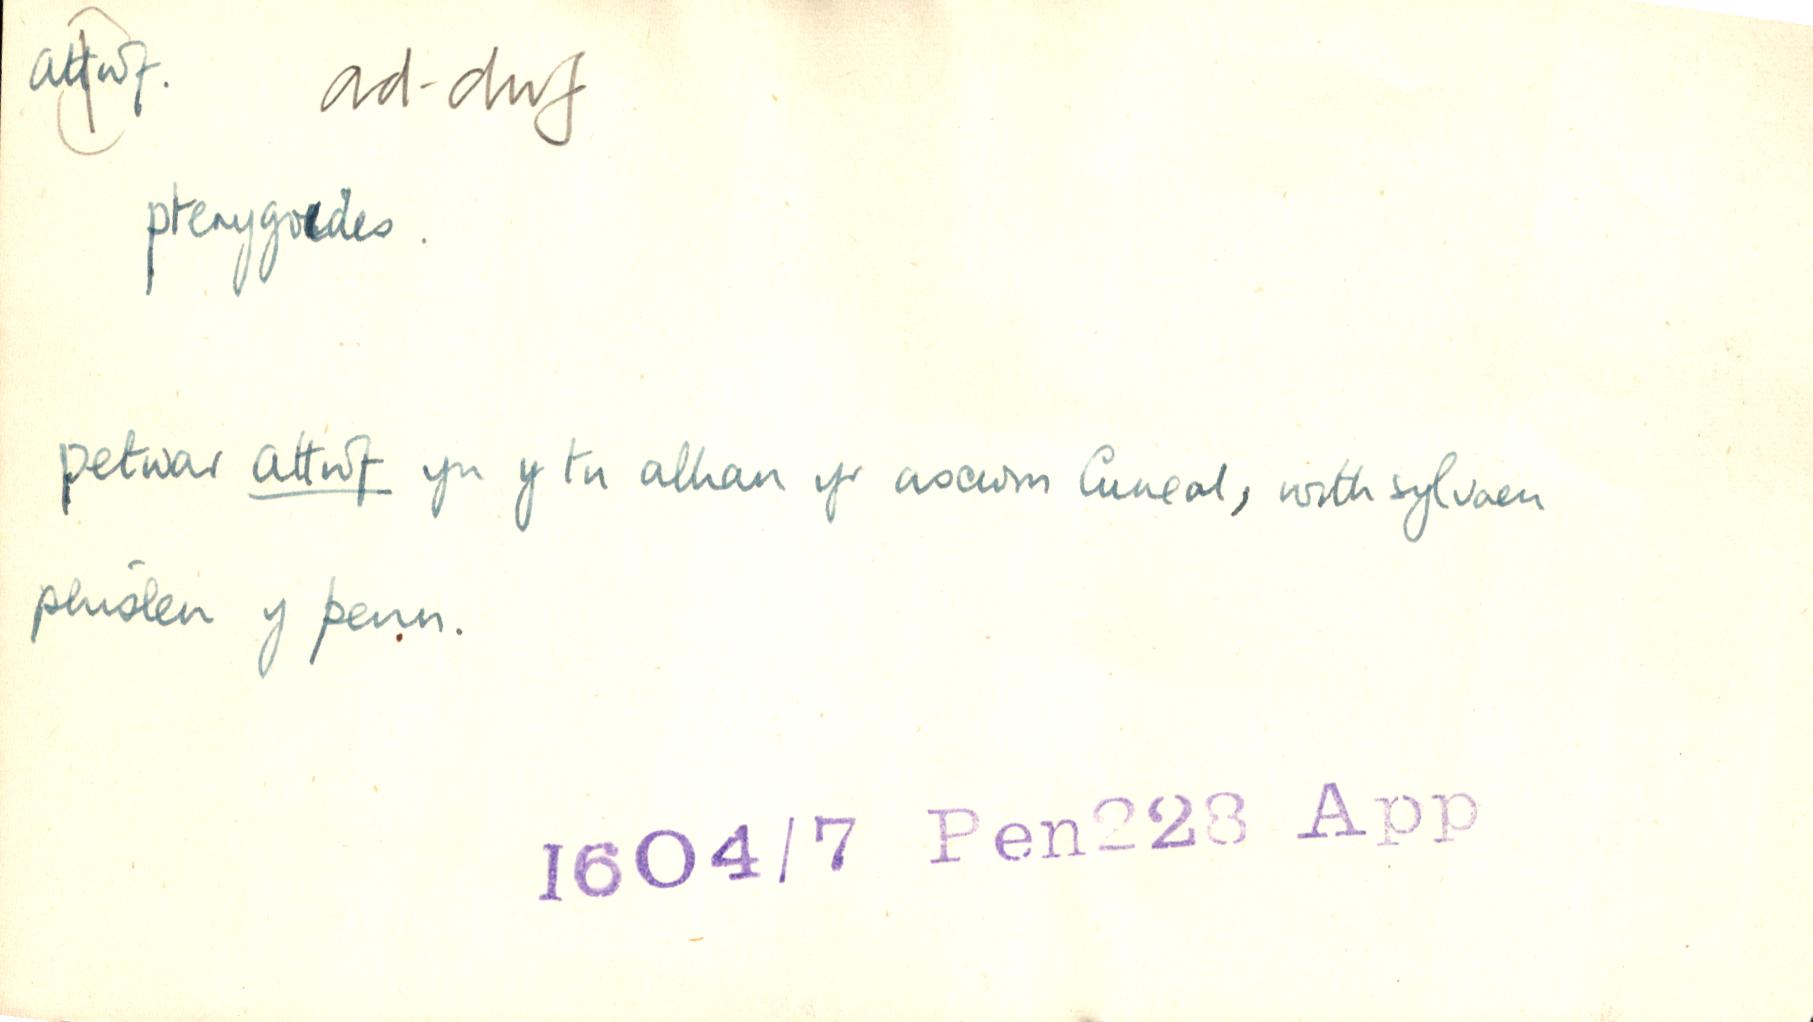 attwf. ad-dwf
pterygoedes.
petwar attwf yn y tu alhan yr ascwrn Cuneal, wrth sylvaen
phiolen y penn.
1604/7 Pen228 App